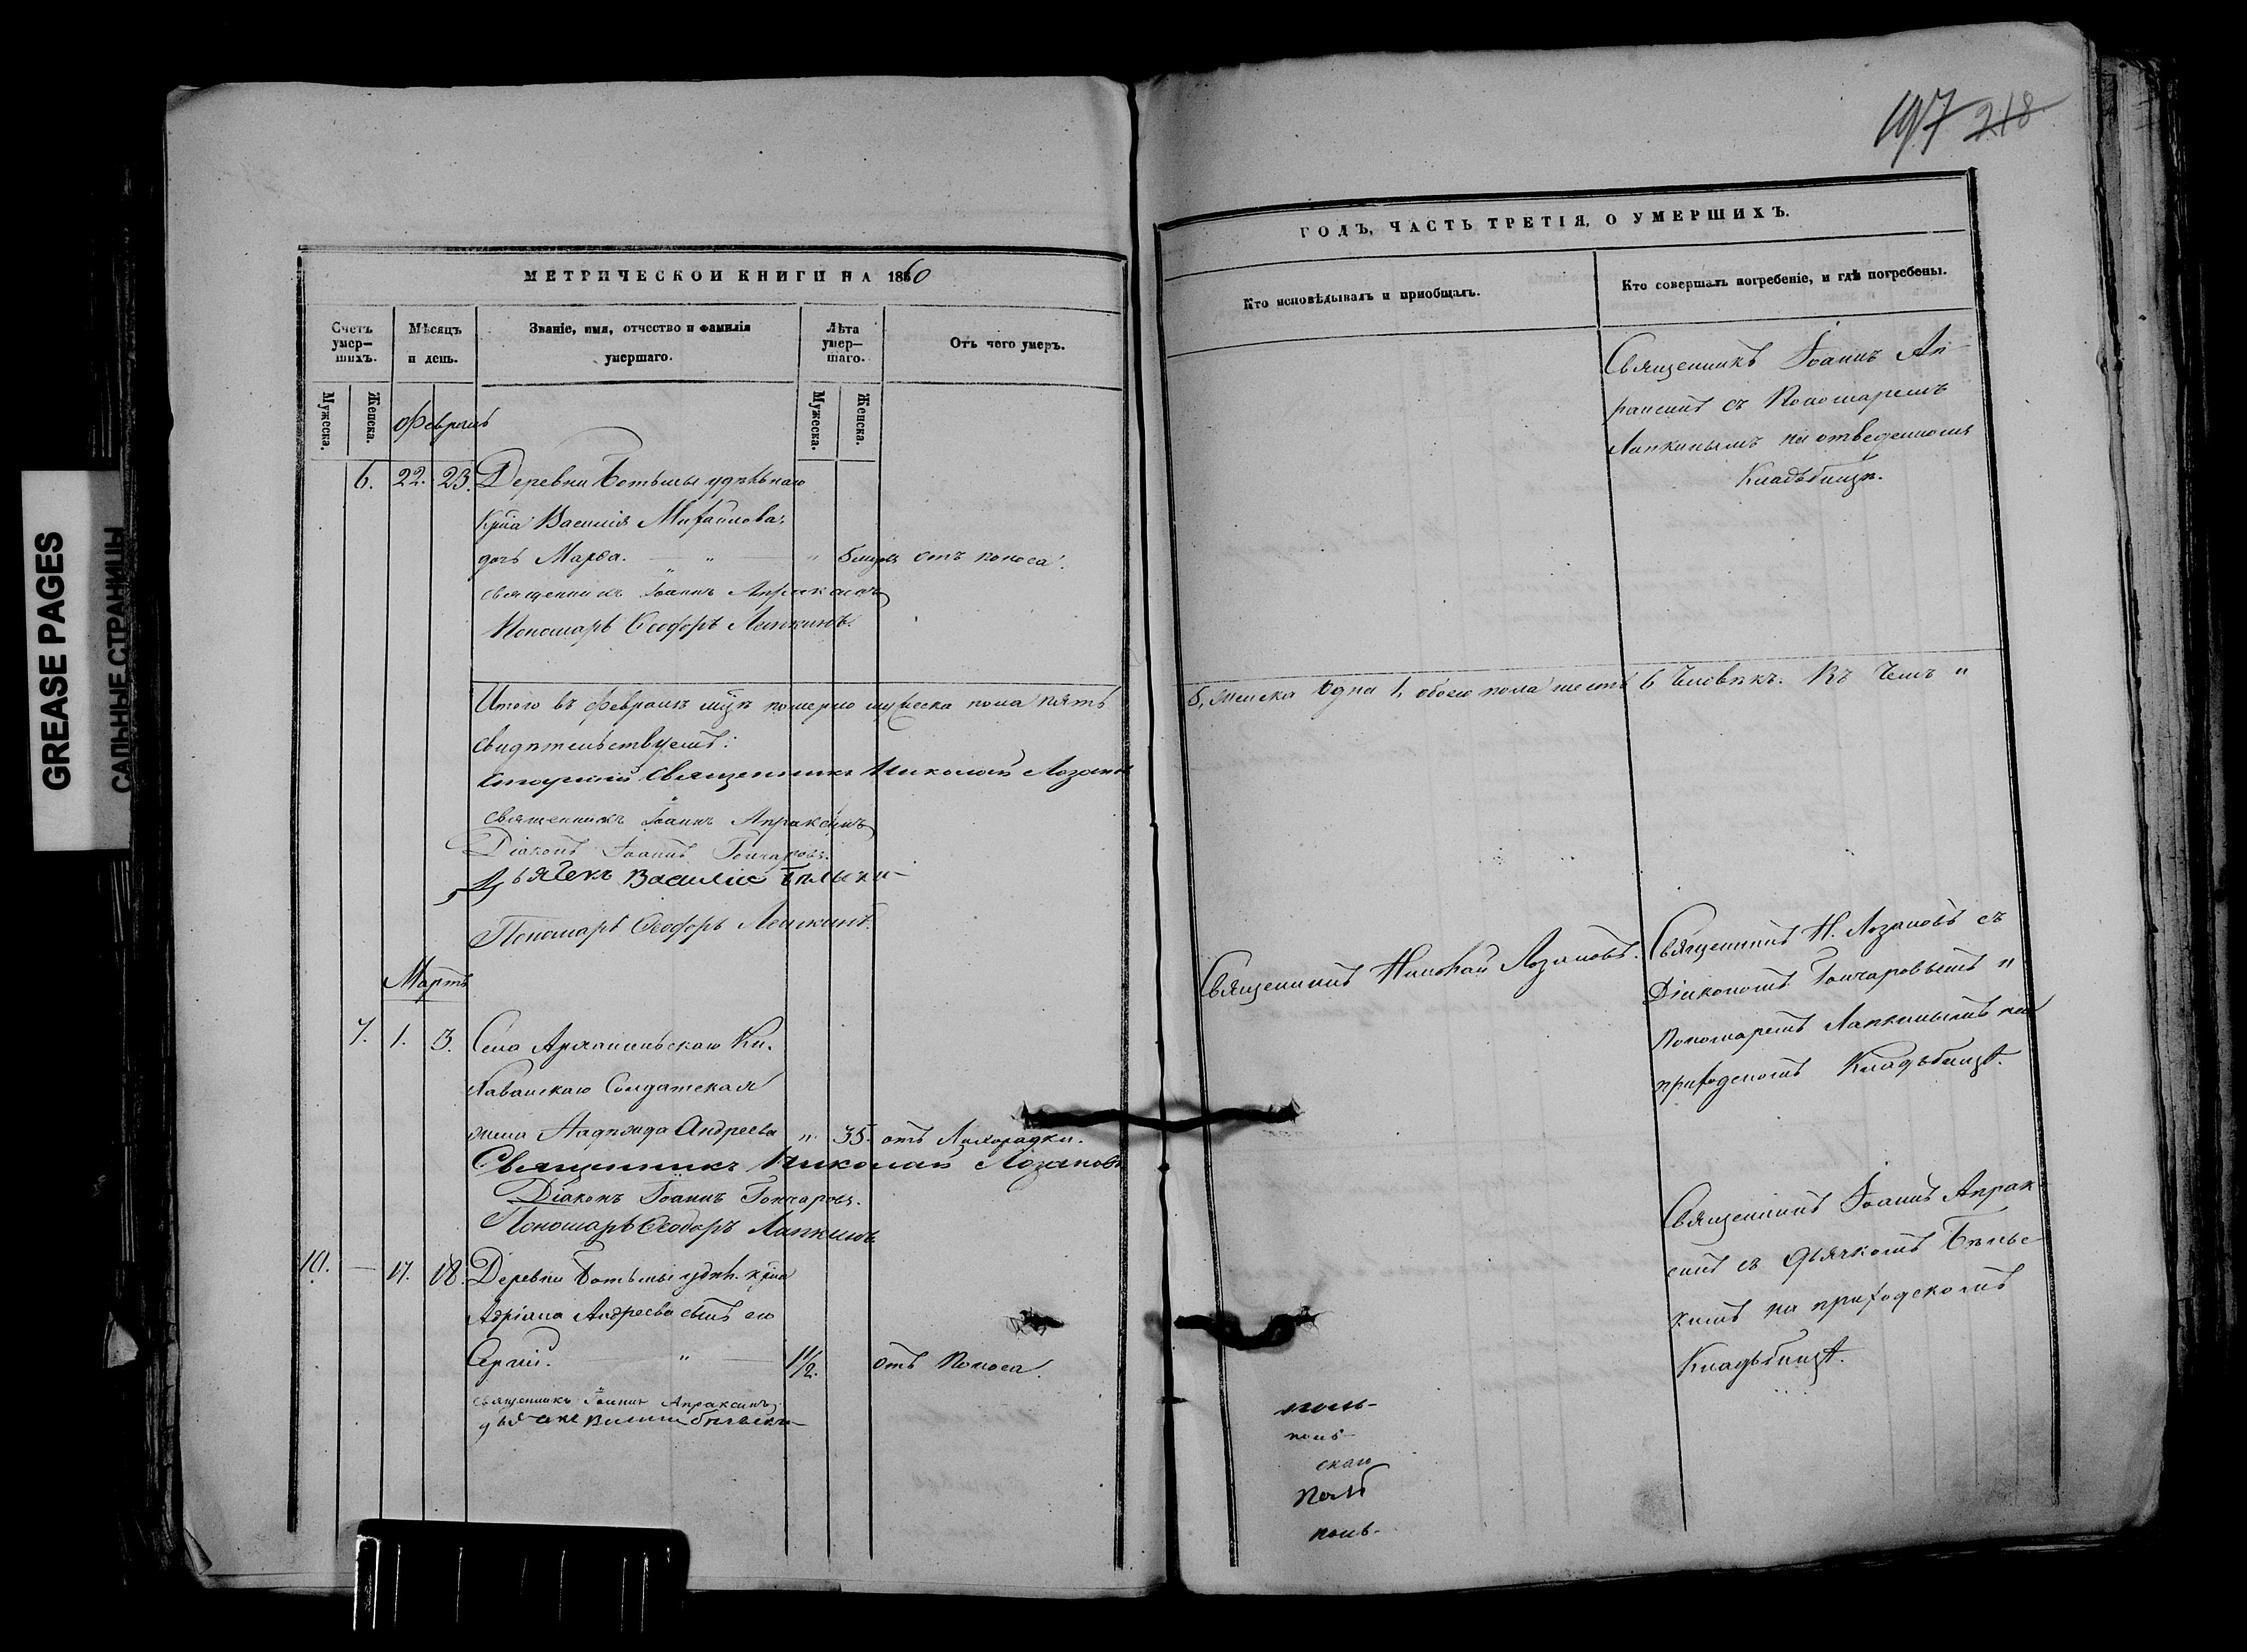 GREASE PAGES
САЛЬНЫЕ СТРАНИЦЫ
МЕТРИЧЕСКОЙ КНИГИ НА 1860
Счетъ умер-шихъ.
Мѣсяцъ и день.
Званіе, имя, отчество и фамилія умершаго.
Лѣта умер-шаго.
Отъ чего умеръ.
Мужеска.
Женска.
Мужеска.
Женска.
Февраль
6. 22. 23. Деревни Ботьмы удѣльнаго
Кр͠на Василія Михаилова
дочь Марѳа. — „ — „ отъ поноса.
Священникъ Іоаннъ Апраксинъ
Пономарь Ѳеодоръ Лапкинъ.
Итого въ Февралѣ мц͠ѣ померло мужеска пола пять
свидѣтельствуемъ:
Священникъ Николай Лозановъ
Священникъ Іоаннъ Апраксинъ
Діаконъ Іоаннъ Гончаровъ.
Дьячекъ Василіе
Пономарь Ѳеодоръ Лапкинъ.
Мартъ
7. 1. 3. Села Архангельскаго
Солдатская
жена Надѣжда Андреева „ 35. отъ Лихорадки.
Священникъ Николай Лозановъ
Діаконъ Іоаннъ Гончаровъ.
Пономарь Ѳеодоръ Лапкинъ
10. — 17. 18. Деревни Ботьмы удѣл. кр͠на
Адріана Андреева сынъ его
Сергій. — „ — 1 1/2. отъ Поноса.
Священникъ Іоаннъ Апраксинъ
197 218
ГОДЪ, ЧАСТЬ ТРЕТІЯ, О УМЕРШИХЪ.
Кто исповѣдывалъ и пріобщалъ.
Кто совершалъ погребеніе, и гдѣ погребены.
Священникъ Іоаннъ Ап-
раксинъ съ Пономаремъ
Лапкинымъ на отведенномъ
Кладъбищѣ.
5, женска одна 1, обоего пола шесть 6 Человѣкъ. Въ Чемъ „
Священникъ Николай Лозановъ.
Священникъ Н. Лозановъ съ
Діакономъ Гончаровымъ и
Пономаремъ Лапкинымъ на
приходскомъ Кладъбищѣ.
Священникъ Іоаннъ Апрак-
синъ съ Дьячкомъ Бѣльс-
кимъ на приходскомъ
Кладъбищѣ.
поль-
скаго